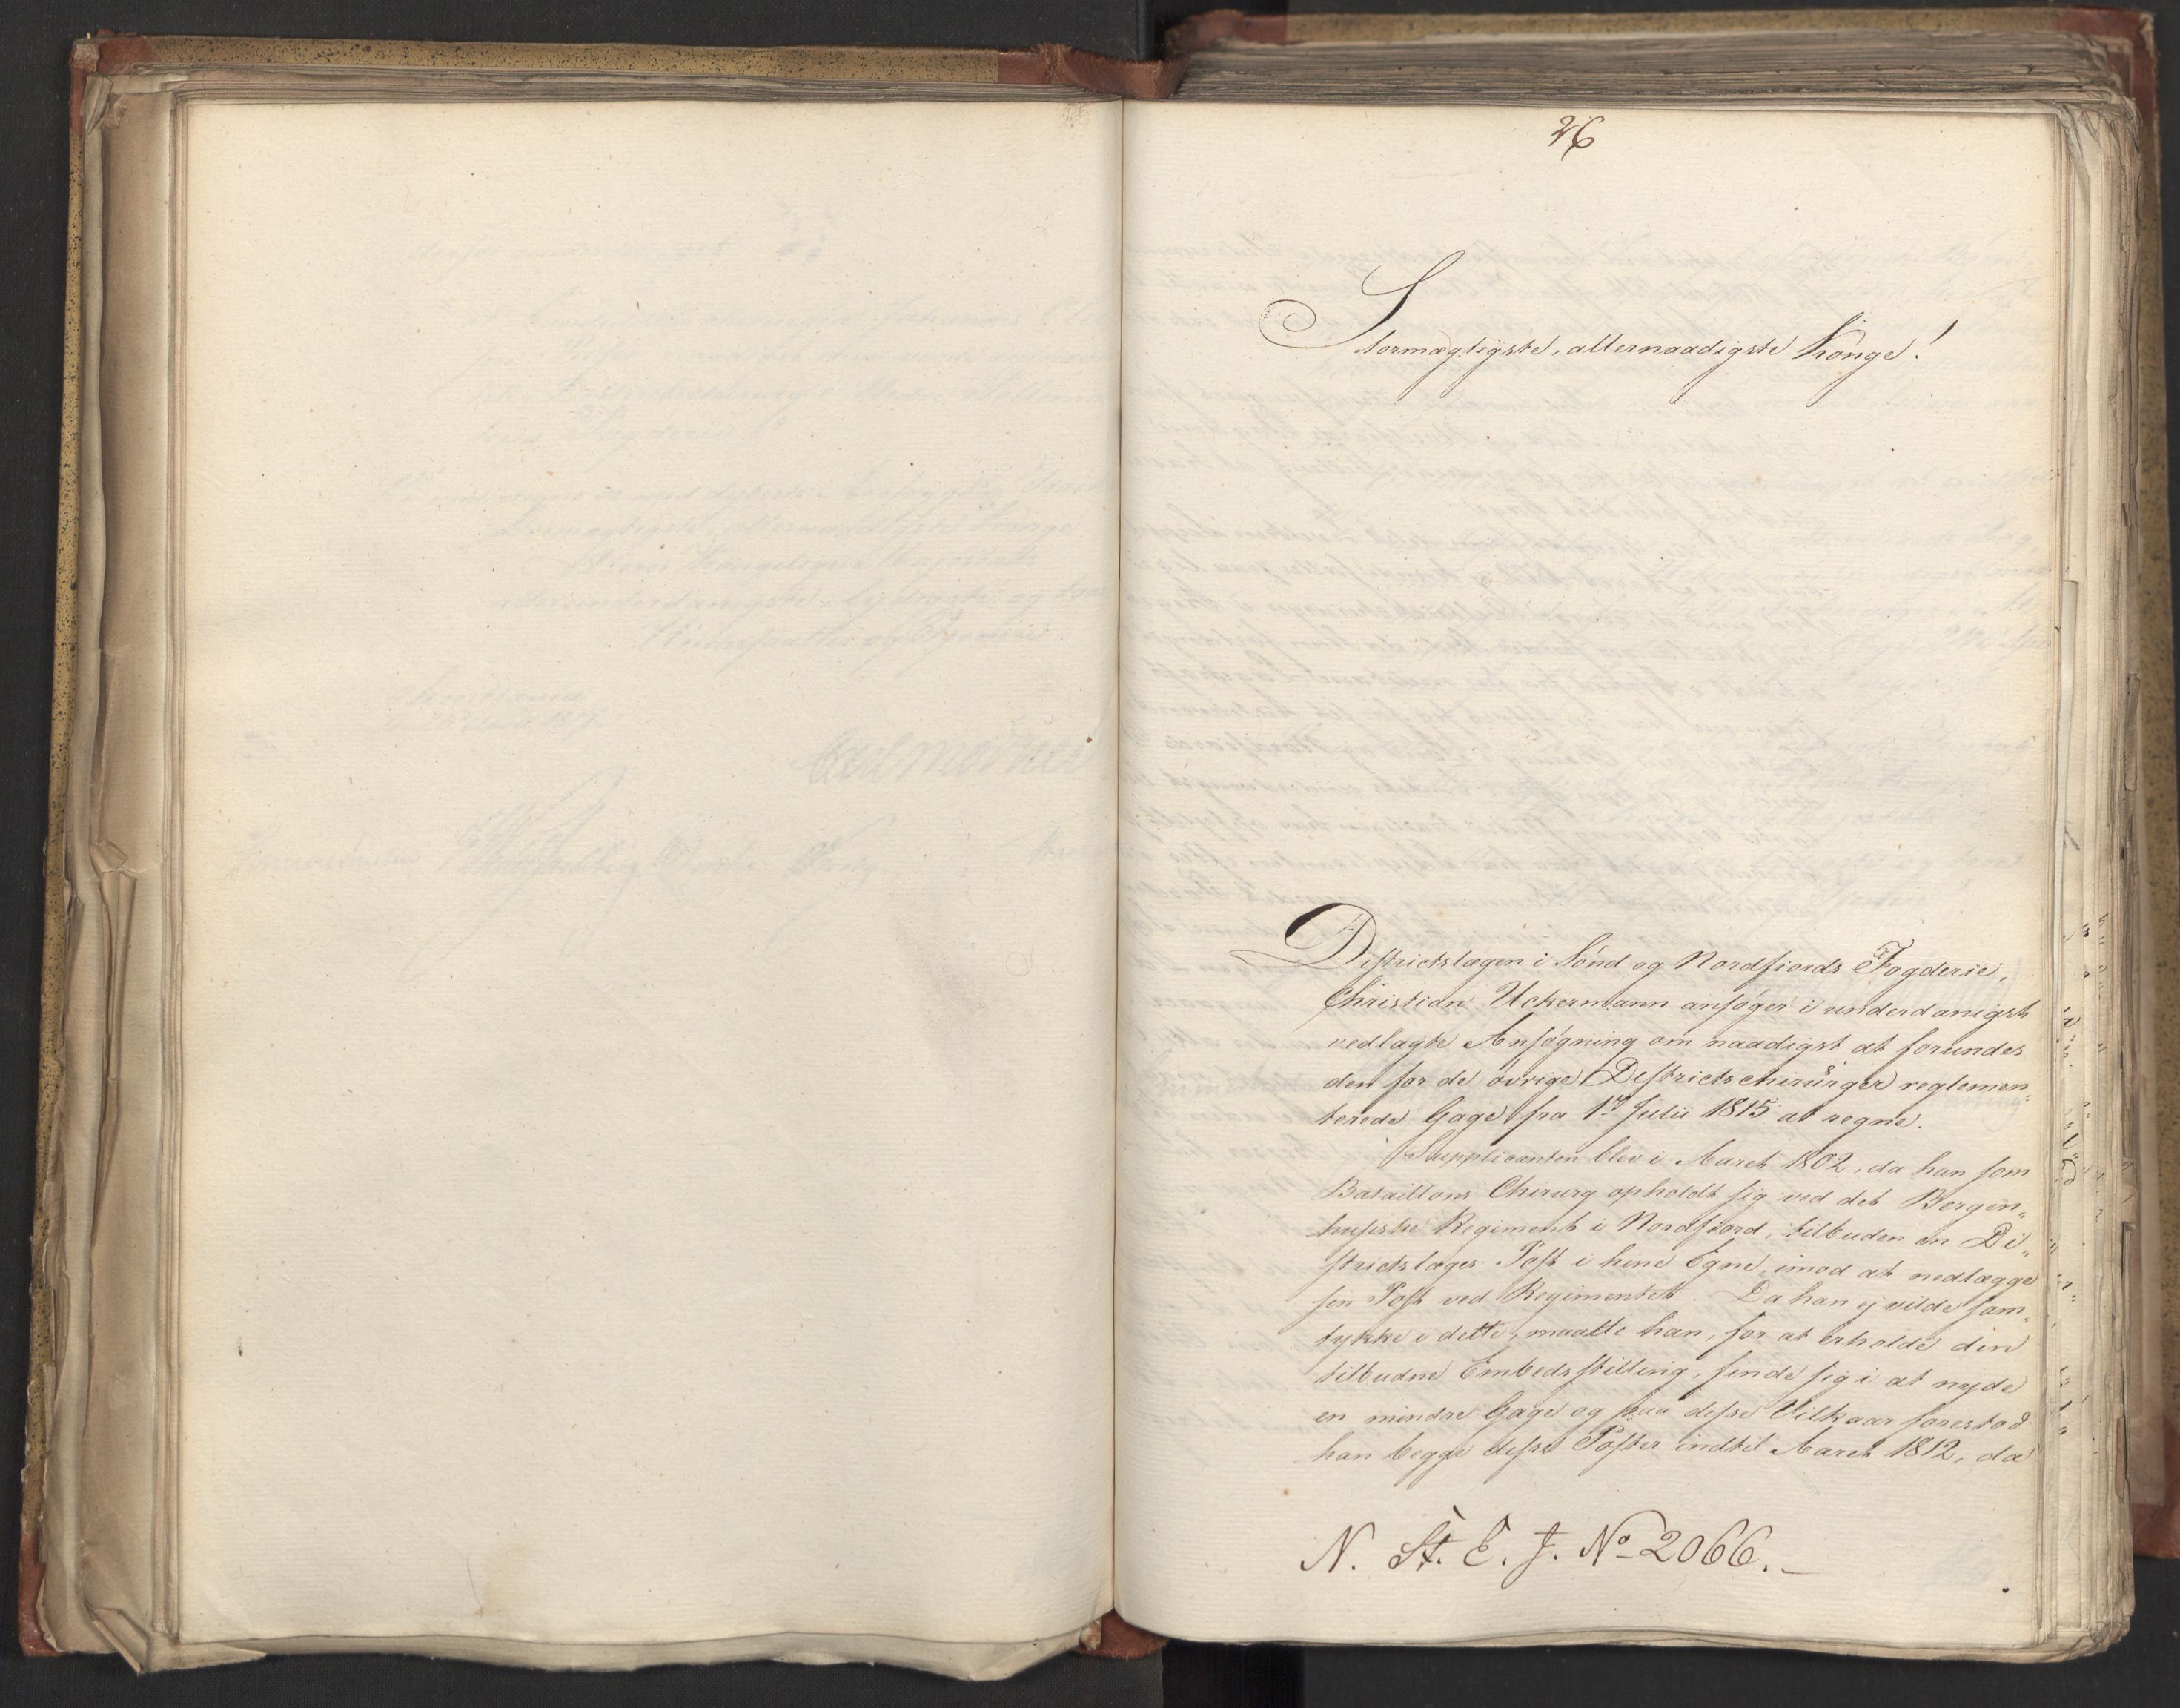 26
Stormægtigste, allernaadigste Konge!
Districtslægen i Sønd og Nordfiords Fogderie,
Christian Uckermann ansøger i underdanigst
vedlagte Ansøgning om naadigst at forundes
den for de øvrige Districtschirurger reglemen„
terede Gage fra 1ste Julii 1815 at regne.
Supplicanten blev i Aaret 1802, da han som
Bataillons Chirurg opholdt sig ved det Bergen„
husiske Regiment i Nordfiord, tilbuden en Di„
strictslæges Post i hine Egne, imod at nedlægge
sin Post ved Regimentet. Da han ej vilde sam„
tykke i dette, maatte han, for at erholde den
tilbudne Embedsstilling, finde sig i at nyde
en mindre Gage og paa disse Vilkaar forestod
han begge disse Poster indtil Aaret 1812, da
N. St. E. J. No 2066.